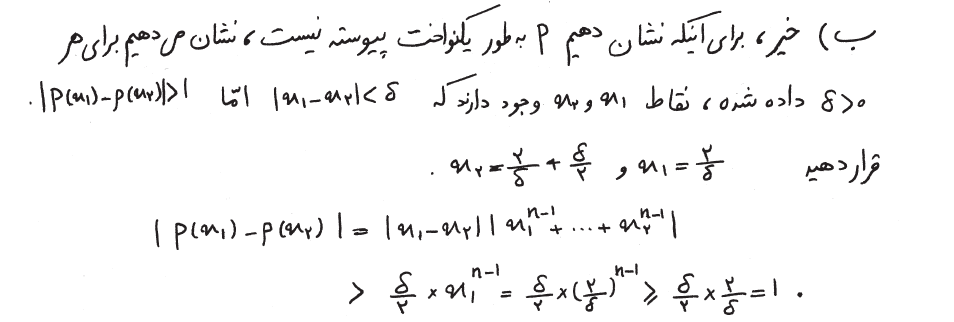 ب) خیر، برای اینکه نشان دهیم P به طور یکنواخت پیوسته نیست، نشان می دهیم برای هر
δ>۰ داده شده، نقاط x₁ و x₂ وجود دارند که |x₁-x₂|<δ امّا |P(x₁)-P(x₂)|>1.
قرار دهید x₁=۲/δ و x₂=۲/δ+δ/۲.
|P(x₁)-P(x₂)|=|x₁-x₂||x₁ⁿ⁻¹+...+x₂ⁿ⁻¹|
> δ/۲ × x₁ⁿ⁻¹ = δ/۲ × (۲/δ)ⁿ⁻¹ ⩾ δ/۲ × ۲/δ = 1.